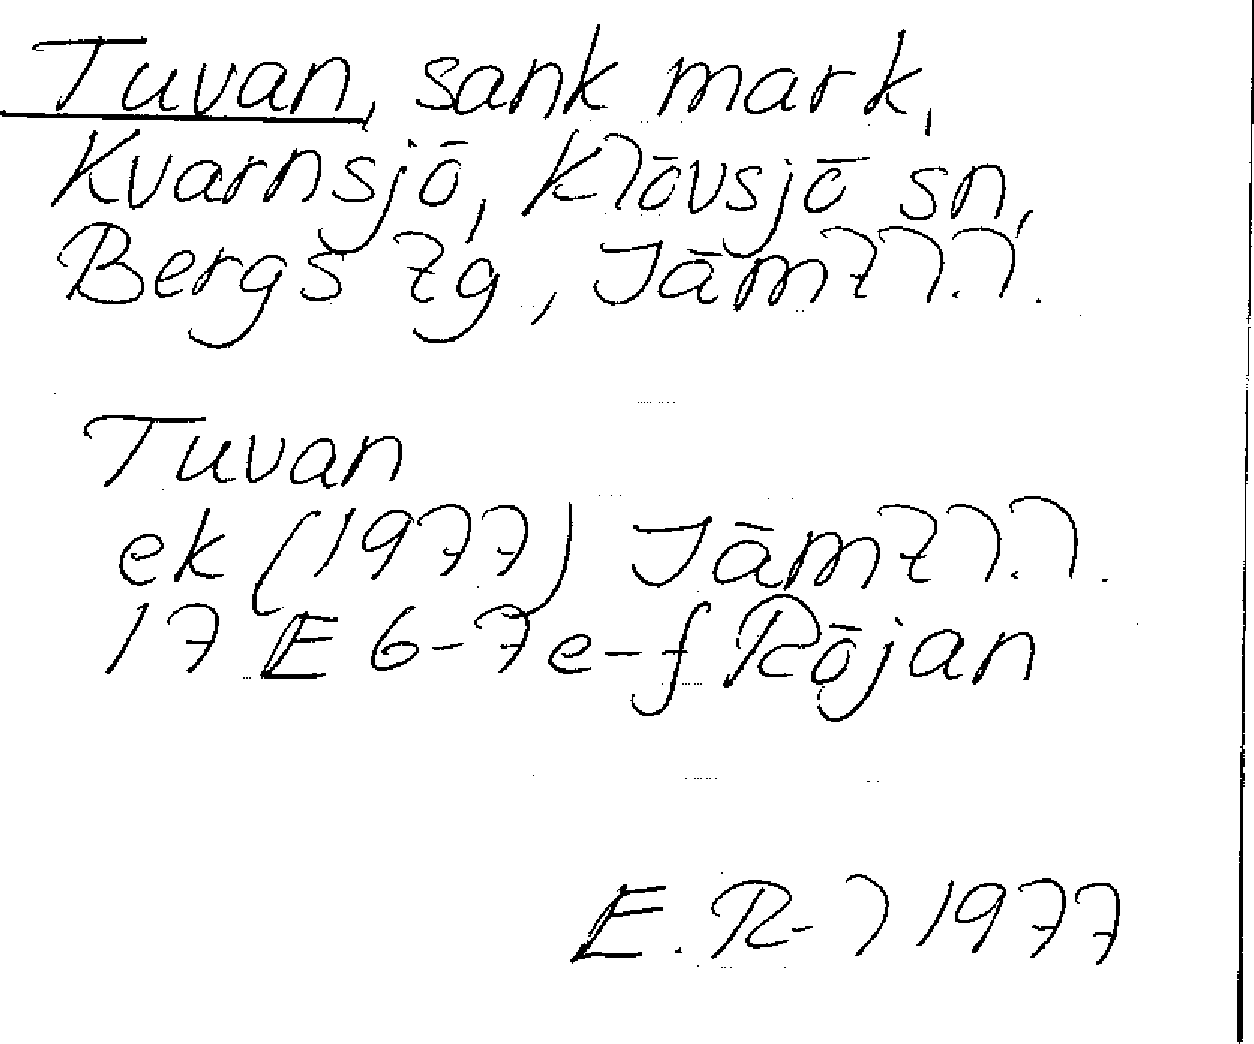 Tuvan, sank mark,
Kvarnsjö, Klövsjö sn,
Bergs tg, Jämtl.l.
Tuvan
ek (1977) Jämtl.l.
17 E 6-7e-f Röjan
E. R-l 1977